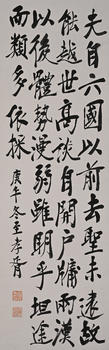 夫自六國以前去聖未遠故
能越世高談自開戶牖兩漢
以後體勢漫弱雖明乎坦途
而類多依採 庚午冬至孝胥